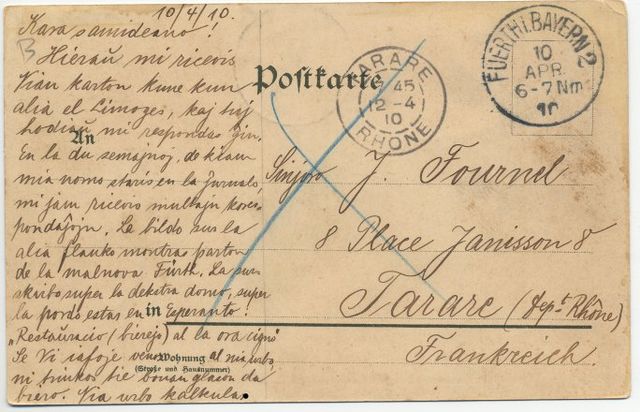 10/4/10.
Kara samideano!
B
Hieraŭ mi ricevis
Vian karton kune kun
alia el Limoges, kaj tuj
hodiaŭ mi respondas ĝin.
En la du semajnoj, de kiam
mia nomo staris en la Jurnalo,
mi jam ricevis multajn kores-
pondaĵojn. La bildo sur la
alia flanko montra parton
de la malnova Fürth. La sur-
skribo super la dekstra domo, super
la pordo estas en Esperanto!
"Restaŭracio (bierejo) al la ora cigno"
Se Vi iafoje venos al nia urbo
ni trinkos tie bonan glason da
biero. Via urbo kalkulas
Postkarte
An
in
Wohnung
(Straße und Hausnummer)
TARARE
7 45
12 - 4
10
RHÔNE
FUERTH I. BAYERN 2
10
APR.
6-7 Nm
10
Sinjoro J. Fournel
8 Place Janisson 8
Tarare (dept Rhône)
Frankreich.